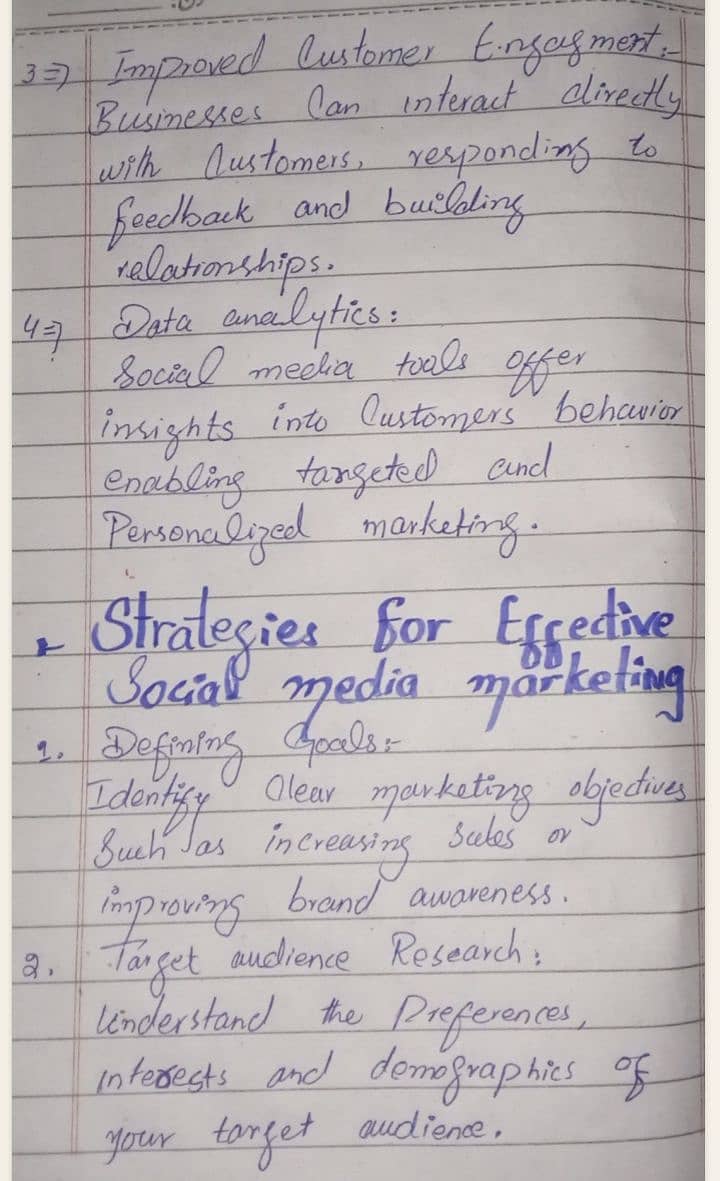 3⇒ Improved Customer Engagment:-
Businesses Can interact directly
with Customers, responding to
feedback and building
relationships.
4⇒ Data analytics:
Social media tools offer
insights into Customers behavior
enabling targeted and
Personalized marketing.
Strategies for Effective
Social media marketing
1. Defining Goals:-
Identify Clear marketing objectives
Such as increasing Sales or
improving brand awareness.
2. Target audience Research:
Understand the Preferences,
interests and demographics of
your target audience.